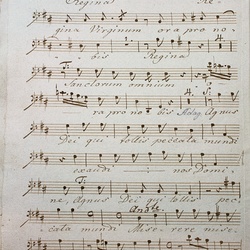 Regina Re-
gina Virginum ora pro no-
bis Regina
Sanctorum omnium
ora pro no- bis Adag. Agnus
Dei qui tollis peccata mundi
exaudi nos Domi-
ne, Agnus Dei qui tollis pec-
cata mundi Mise- rere mise-